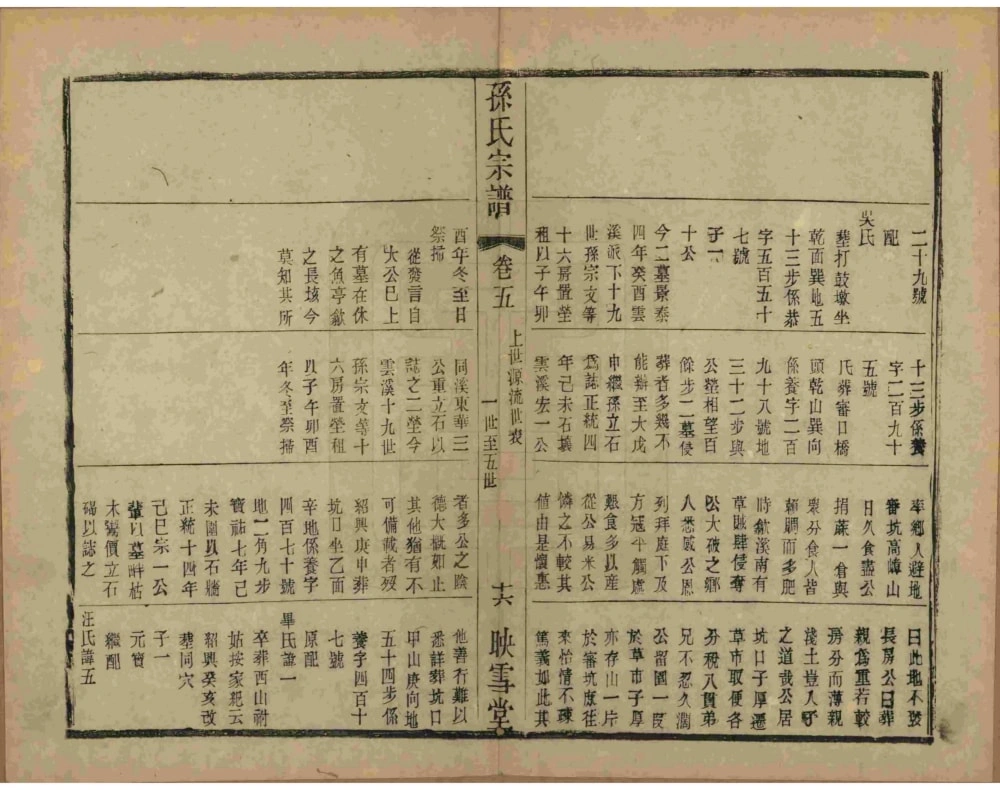 二十九號
配
吳氏
葬打鼓墩坐
乾面巽地五
十三步係恭
字五百五十
七號
子二
十公
今二墓景泰
四年癸酉雲
溪派下十九
世孫宗文等
十六房置塋
租以子午卯
十三步係養
字二百九十
五號
氏葬審口橋
頭乾山巽向
係養字二百
九十八號地
三十二步與
公塋相望百
餘步二墓侵
葬者多幾不
能辨至大戊
申纓孫立石
為誌正統四
年己未石壞
雲溪宏一公
率鄉人避地
審坑高嶂山
日久食盡公
捐蔴一倉與
眾分食人皆
頼賙而多肥
時歙溪南有
草賊肆侵奪
公大破之鄉
人悉感公恩
列拜庭下及
方冦平饑處
艱食多以産
從公易米公
憐之不較其
值由是懷惠
曰此地不發
長房公曰葬
親為重若較
房分而薄親
淺土豈人子
之道哉公居
坑口子厚遷
草市取便各
分稅八貫弟
兄不忍久濶
公留園一叚
於草市子厚
亦存山一片
於審坑庶往
來怡情不疎
篤義如此其
孫氏宗譜
卷五
上世源流世表
一世至五世
十六
映雪堂
酉年冬至日
祭掃
從發言自
大公巳上
有墓在休
之魚亭歙
之長垓今
莫知其所
同溪東華三
公重立石以
誌之二塋今
雲溪十九世
孫宗文等十
六房置塋租
以子午卯酉
年冬至祭掃
者多公之陰
德大概如止
其他猶有不
可備載者歿
紹興庚申葬
坑口坐乙面
辛地係養字
四百七十號
地二角九步
寶祐七年己
未圍以石牆
正統十四年
己巳宗一公
輩以墓畔枯
木鬻價立石
碣以誌之
他善行難以
悉詳葬坑口
甲山庚向地
五十四步係
養字四百十
七號
原配
畢氏諱一
卒葬西山祔
姑按家耙云
紹興癸亥改
葬同穴
子一
元寶
繼配
汪氏諱五